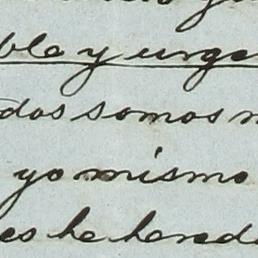 ble y urge
dos somos n
yo mismo
es he hered